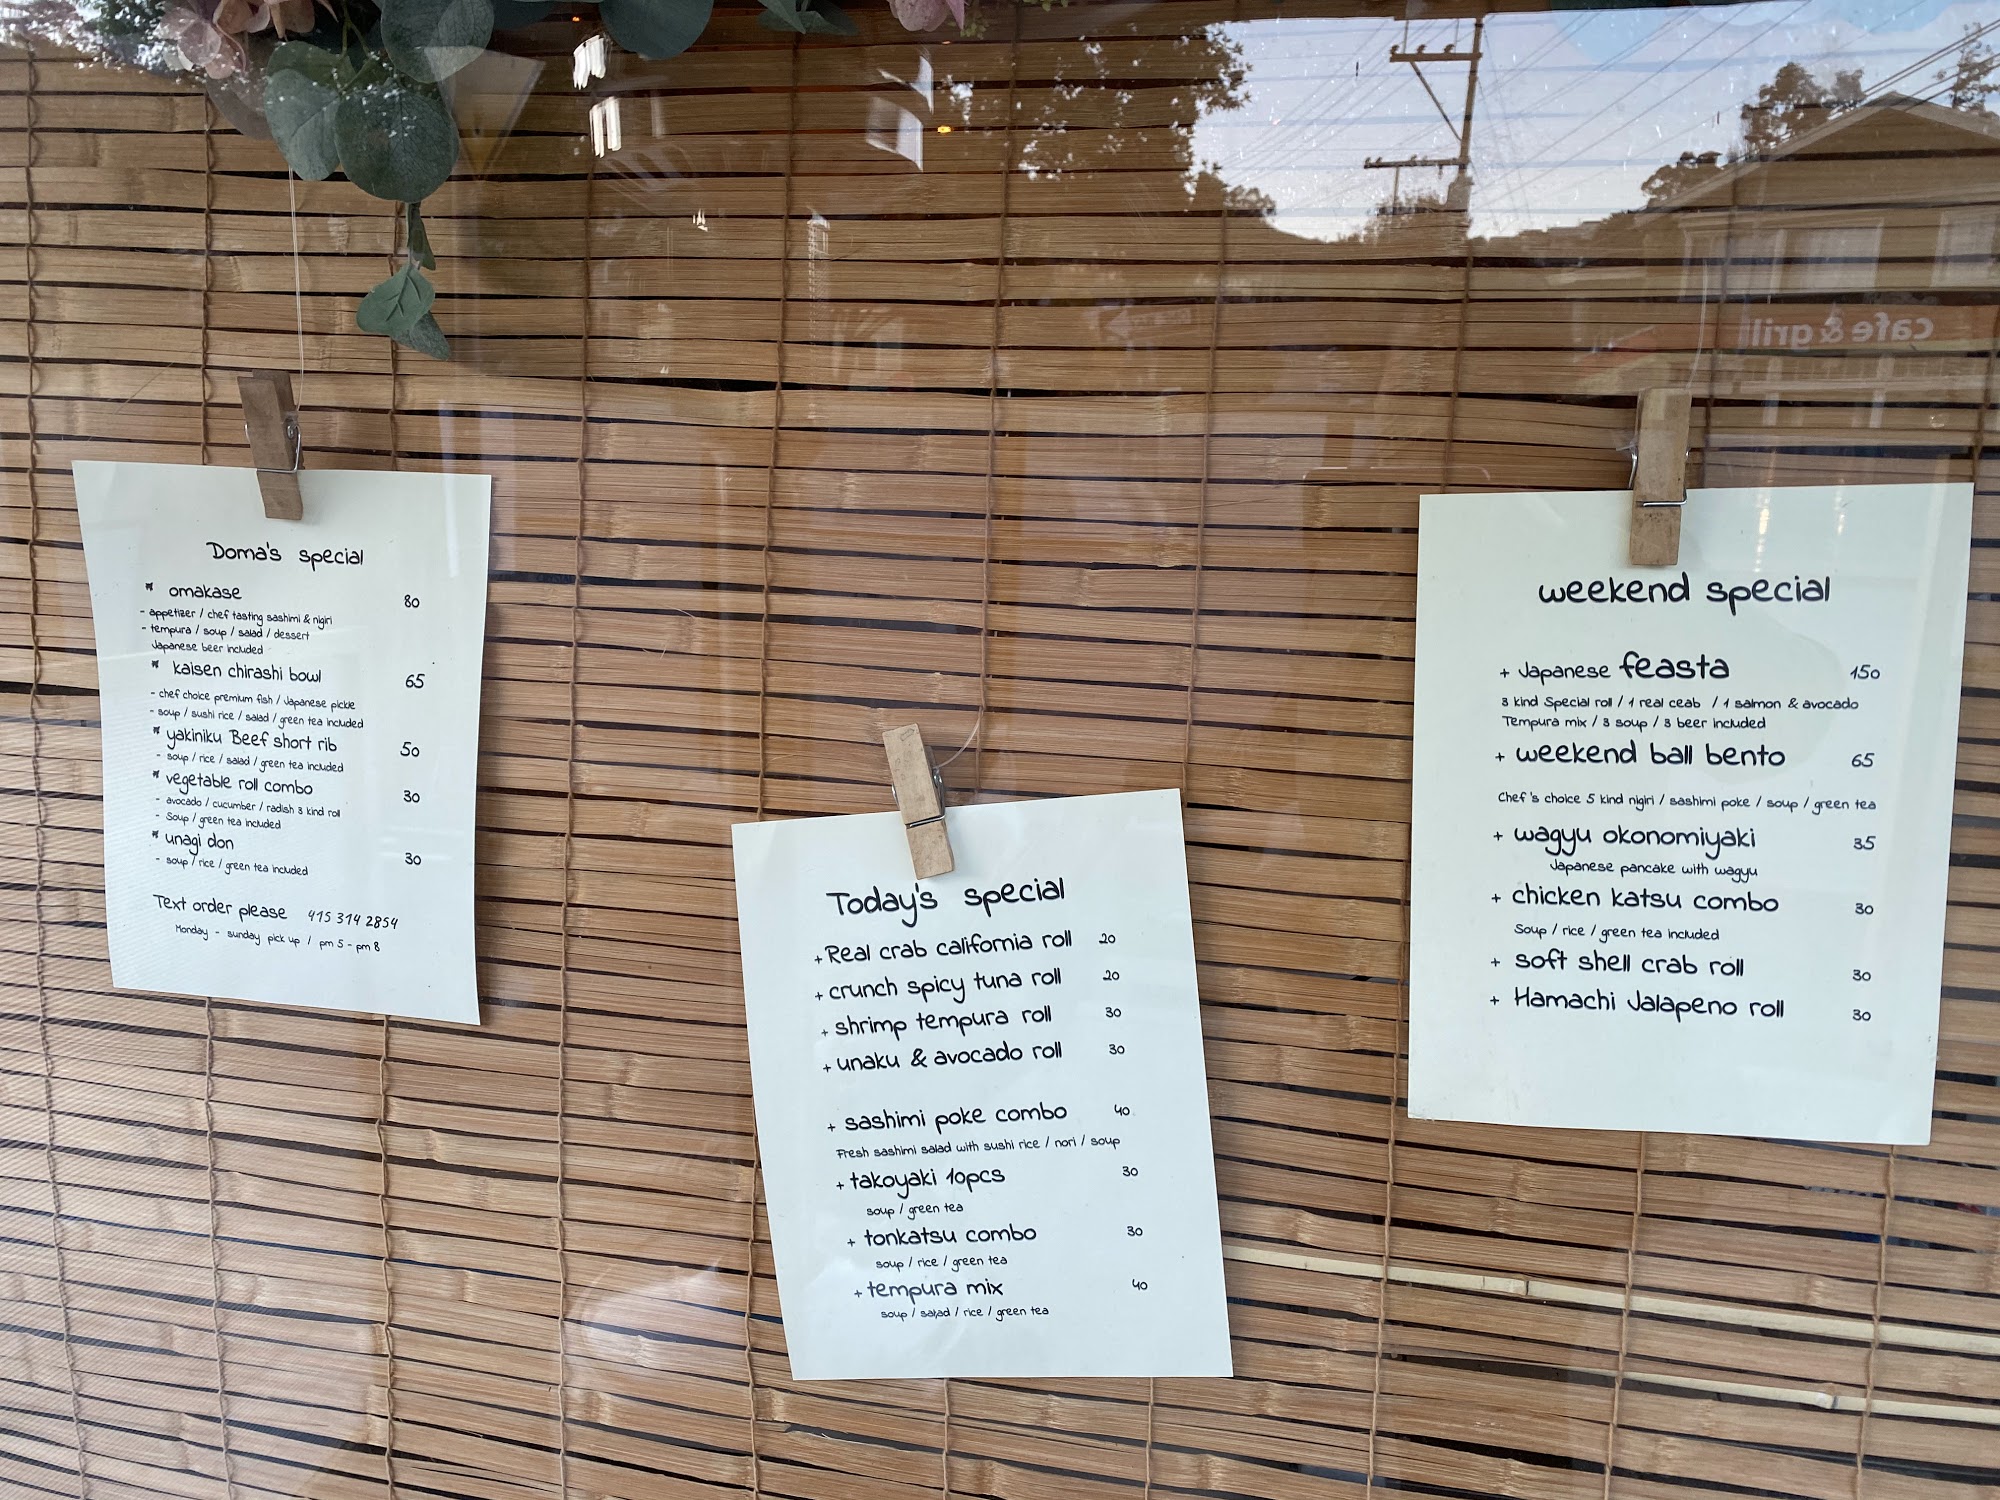 Doma's special
* omakase 80
- appetizer / chef tasting sashimi & nigiri
- tempura / soup / salad / dessert
Japanese beer included
* kaisen chirashi bowl 65
- chef choice premium fish / Japanese pickle
- soup / sushi rice / salad / green tea included
* yakiniku Beef short rib 50
- soup / rice / salad / green tea included
* vegetable roll combo 30
- avocado / cucumber / radish 3 kind roll
- Soup / green tea included
* unagi don 30
- soup / rice / green tea included
Text order please 415 314 2854
Monday - sunday pick up / pm 5 - pm 8
Today's special
+ Real crab california roll 20
+ crunch spicy tuna roll 20
+ shrimp tempura roll 30
+ unaku & avocado roll 30
+ sashimi poke combo 40
Fresh sashimi salad with sushi rice / nori / soup
+ takoyaki 10pcs 30
soup / green tea
+ tonkatsu combo 30
soup / rice / green tea
+ tempura mix 40
soup / salad / rice / green tea
cafe & grill
weekend special
+ Japanese feasta 150
3 kind Special roll / 1 real ceab / 1 salmon & avocado
Tempura mix / 3 soup / 3 beer included
+ weekend ball bento 65
Chef's choice 5 kind nigiri / sashimi poke / soup / green tea
+ wagyu okonomiyaki 35
Japanese pancake with wagyu
+ chicken katsu combo 30
Soup / rice / green tea included
+ soft shell crab roll 30
+ Hamachi Jalapeno roll 30